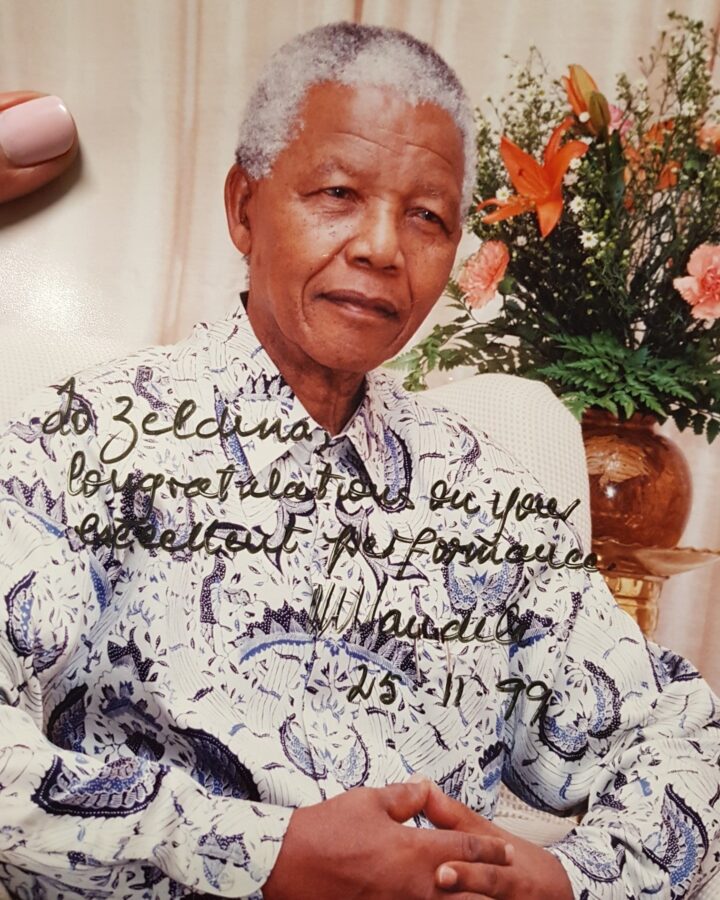 To Zeldina,
Congratulations on your
excellent performance.
NMandela
25 · 11 99